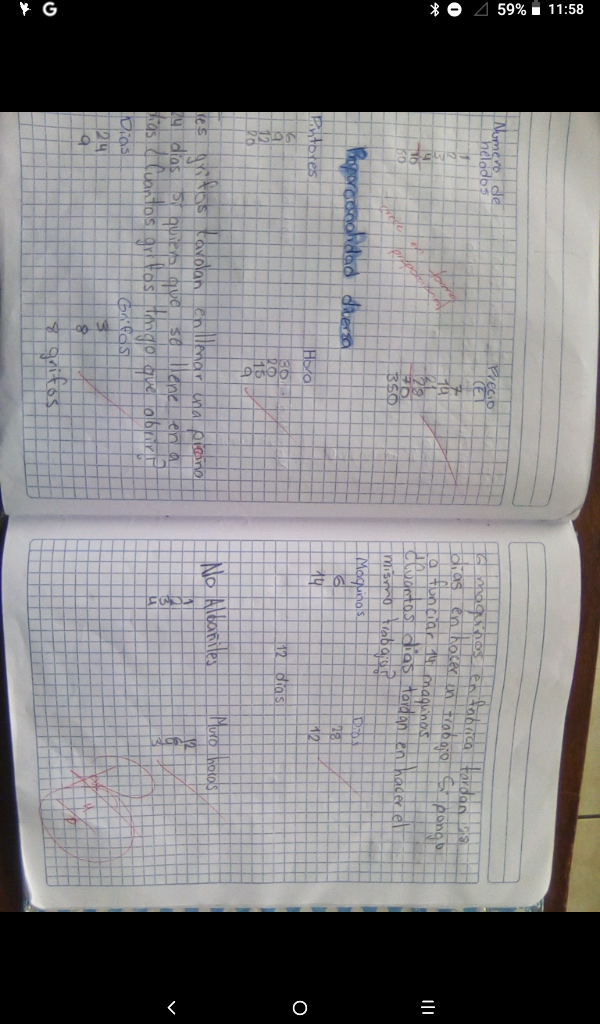 59% 11:58
Numero de helados
Precio (£)
1 7
2 14
3 21
4 28
10 70
50 350
Proporcionalidad diversa
Pintores Hora
6 30
9 20
12 15
20 9
res grifos tardan en llenar una
24 dias si quiero que se llene en a
dias ¿Cuantos grifos tingo que abrir?
Dias Grifos
24 3
9 8
8 grifos
6 maquinas en fabrica tardan 28
dias en hacer un trabajo Si pongo
a funciar 14 maquinas
Cuantos dias tardan en hacer el
mismo trabajo?
Maquinas Dias
6 28
14 12
12 dias
No Albañiles Muro horas
1 12
2 6
3
4 3